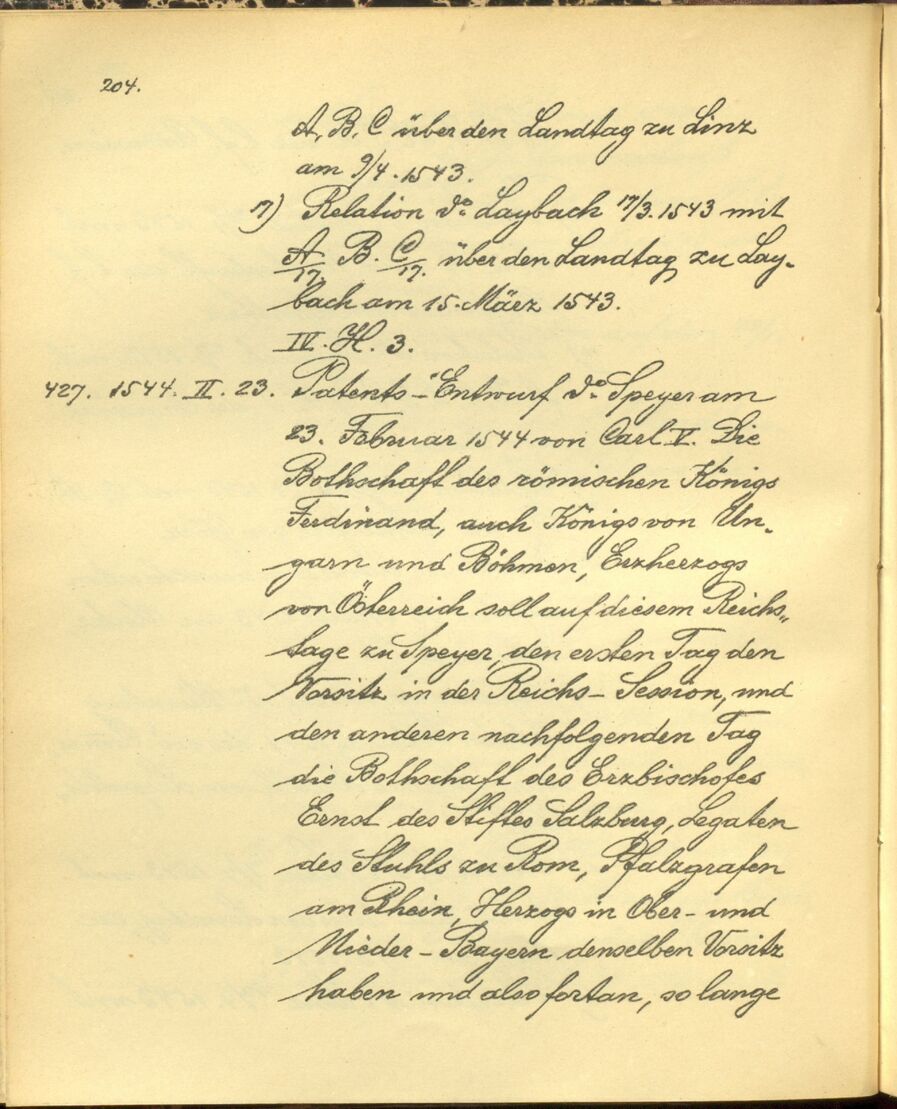 204.
A, B, C über den Landtag zu Linz
am 9/4. 1543.
17) Relation do. Laybach 17/3. 1543 mit
A/17. B. C/17. über den Landtag zu Lay-
bach am 15. März 1543.
IV. H. 3.
427. 1544. II. 23. Patents-Entwurf do. Speyer am
23. Februar 1544 von Carl V. Die
Bothschaft des römischen Königs
Ferdinand, auch Königs von Un-
garn und Böhmen, Erzherzogs
von Österreich soll auf diesem Reichs-
tage zu Speyer, den ersten Tag den
Vorsitz in der Reichs-Session, und
den anderen nachfolgenden Tag
die Bothschaft des Erzbischofes
Ernst des Stiftes Salzburg, Legaten
des Stuhls zu Rom, Pfalzgrafen
am Rhein, Herzogs in Ober- und
Nieder-Bayern denselben Vorsitz
haben und also fortan, so lange